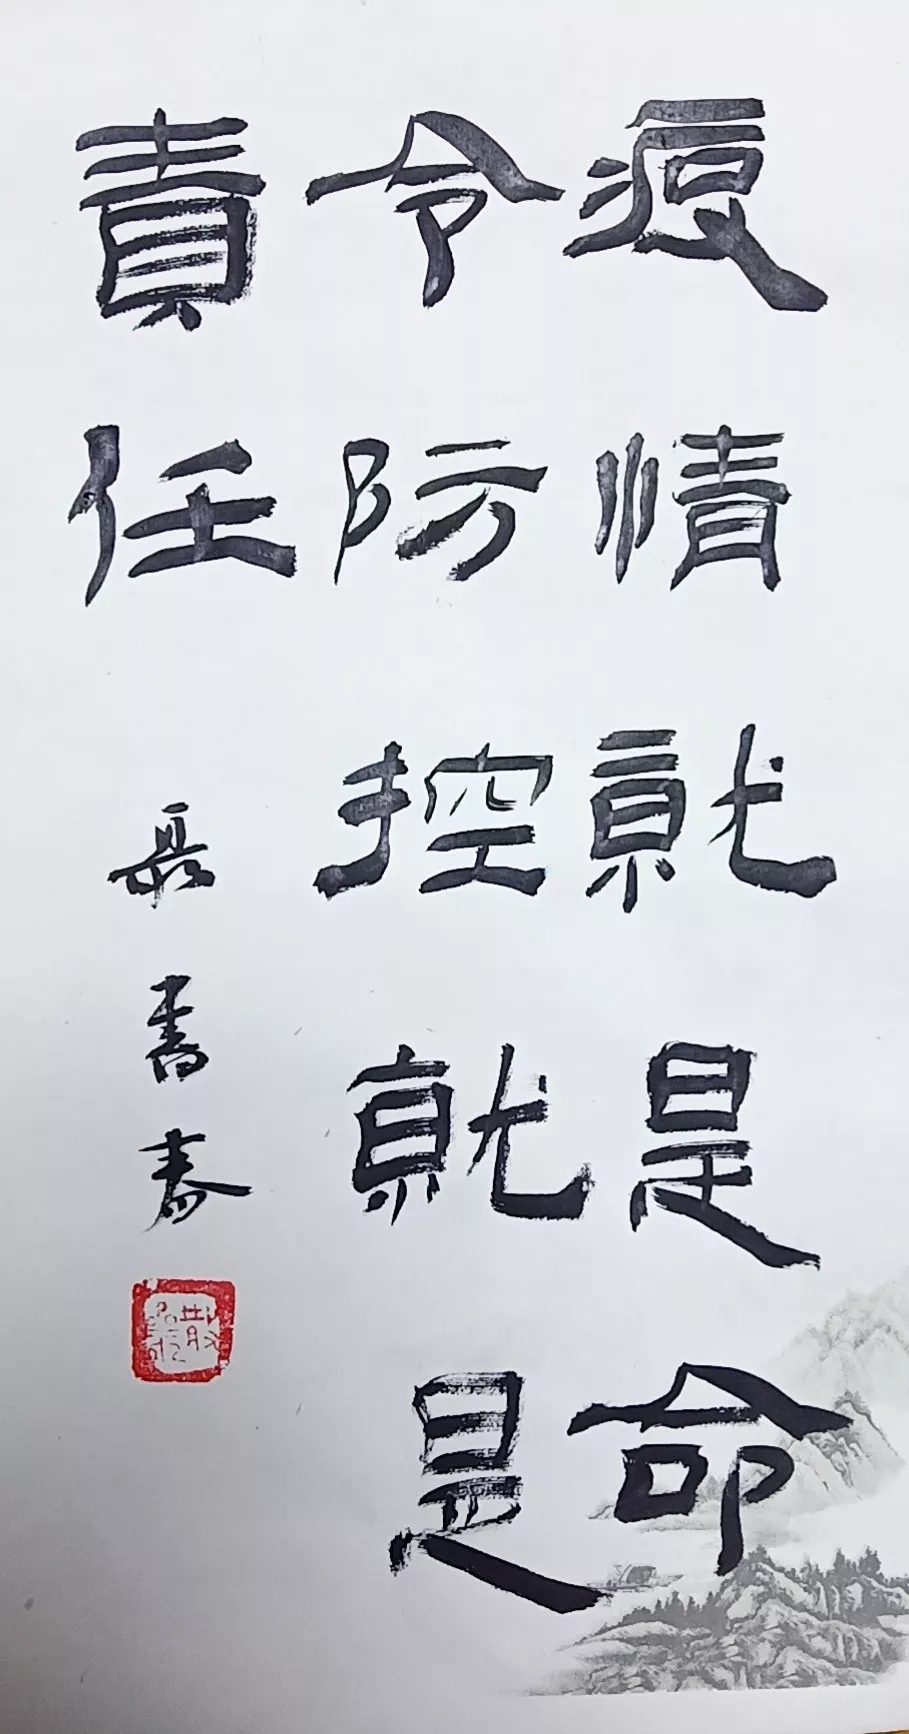 疫情就是命
令防控就是
責任
聂書春